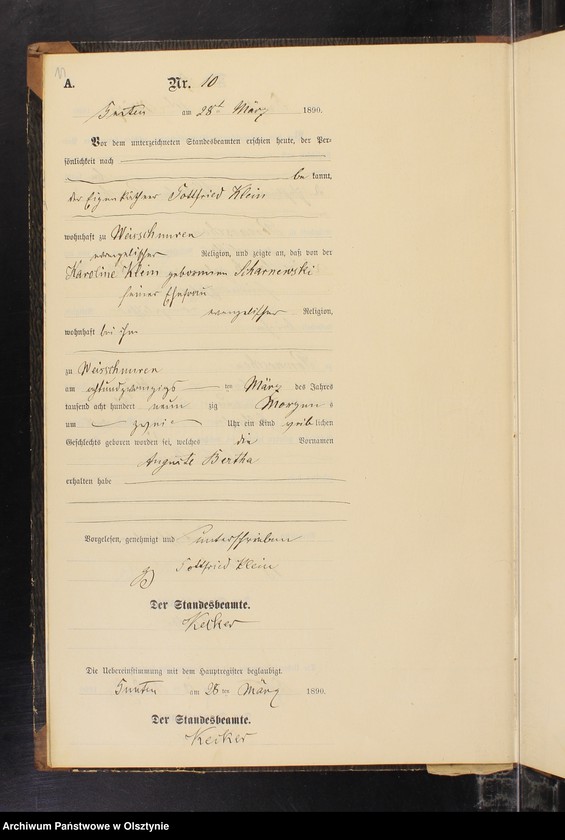 A.
Nr. 10
am 28t März 1890.
Vor dem unterzeichneten Standesbeamten erschien heute, der Per-
sönlichkeit nach
be kannt,
der Eigenkäthner Gottfried Klein
wohnhaft zu
evangelischer Religion, und zeigte an, daß von der
Karoline Klein geborenen Scharnewski
seiner Ehefrau
evangelischer Religion,
wohnhaft bei ihm
zu
am achtundzwanzigs ten März des Jahres
tausend acht hundert neun zig Morgen s
um zwei Uhr ein Kind weib lichen
Geschlechts geboren worden sei, welches die Vornamen
Auguste Bertha
erhalten habe
Vorgelesen, genehmigt und unterschrieben
Gottfried Klein
Der Standesbeamte.
Kecker
Die Uebereinstimmung mit dem Hauptregister beglaubigt.
am 28 ten März 1890.
Der Standesbeamte.
Kecker
Archiwum Państwowe w Olsztynie